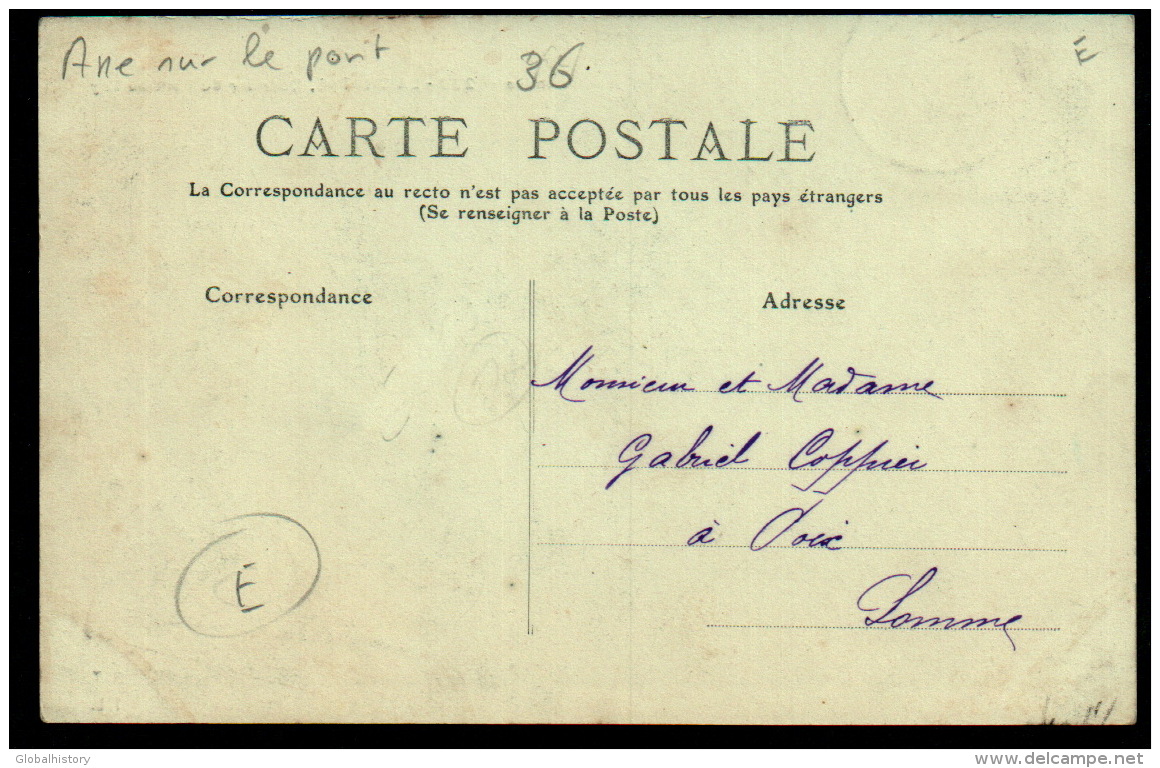 Ane sur le pont
36.
E
CARTE POSTALE
La Correspondance au recto n'est pas acceptée par tous les pays étrangers
(Se renseigner à la Poste)
Correspondance
Adresse
Monsieur et Madame
Gabriel Coppier
à Poix
Somme
E
Globalhistory
delcampe.net